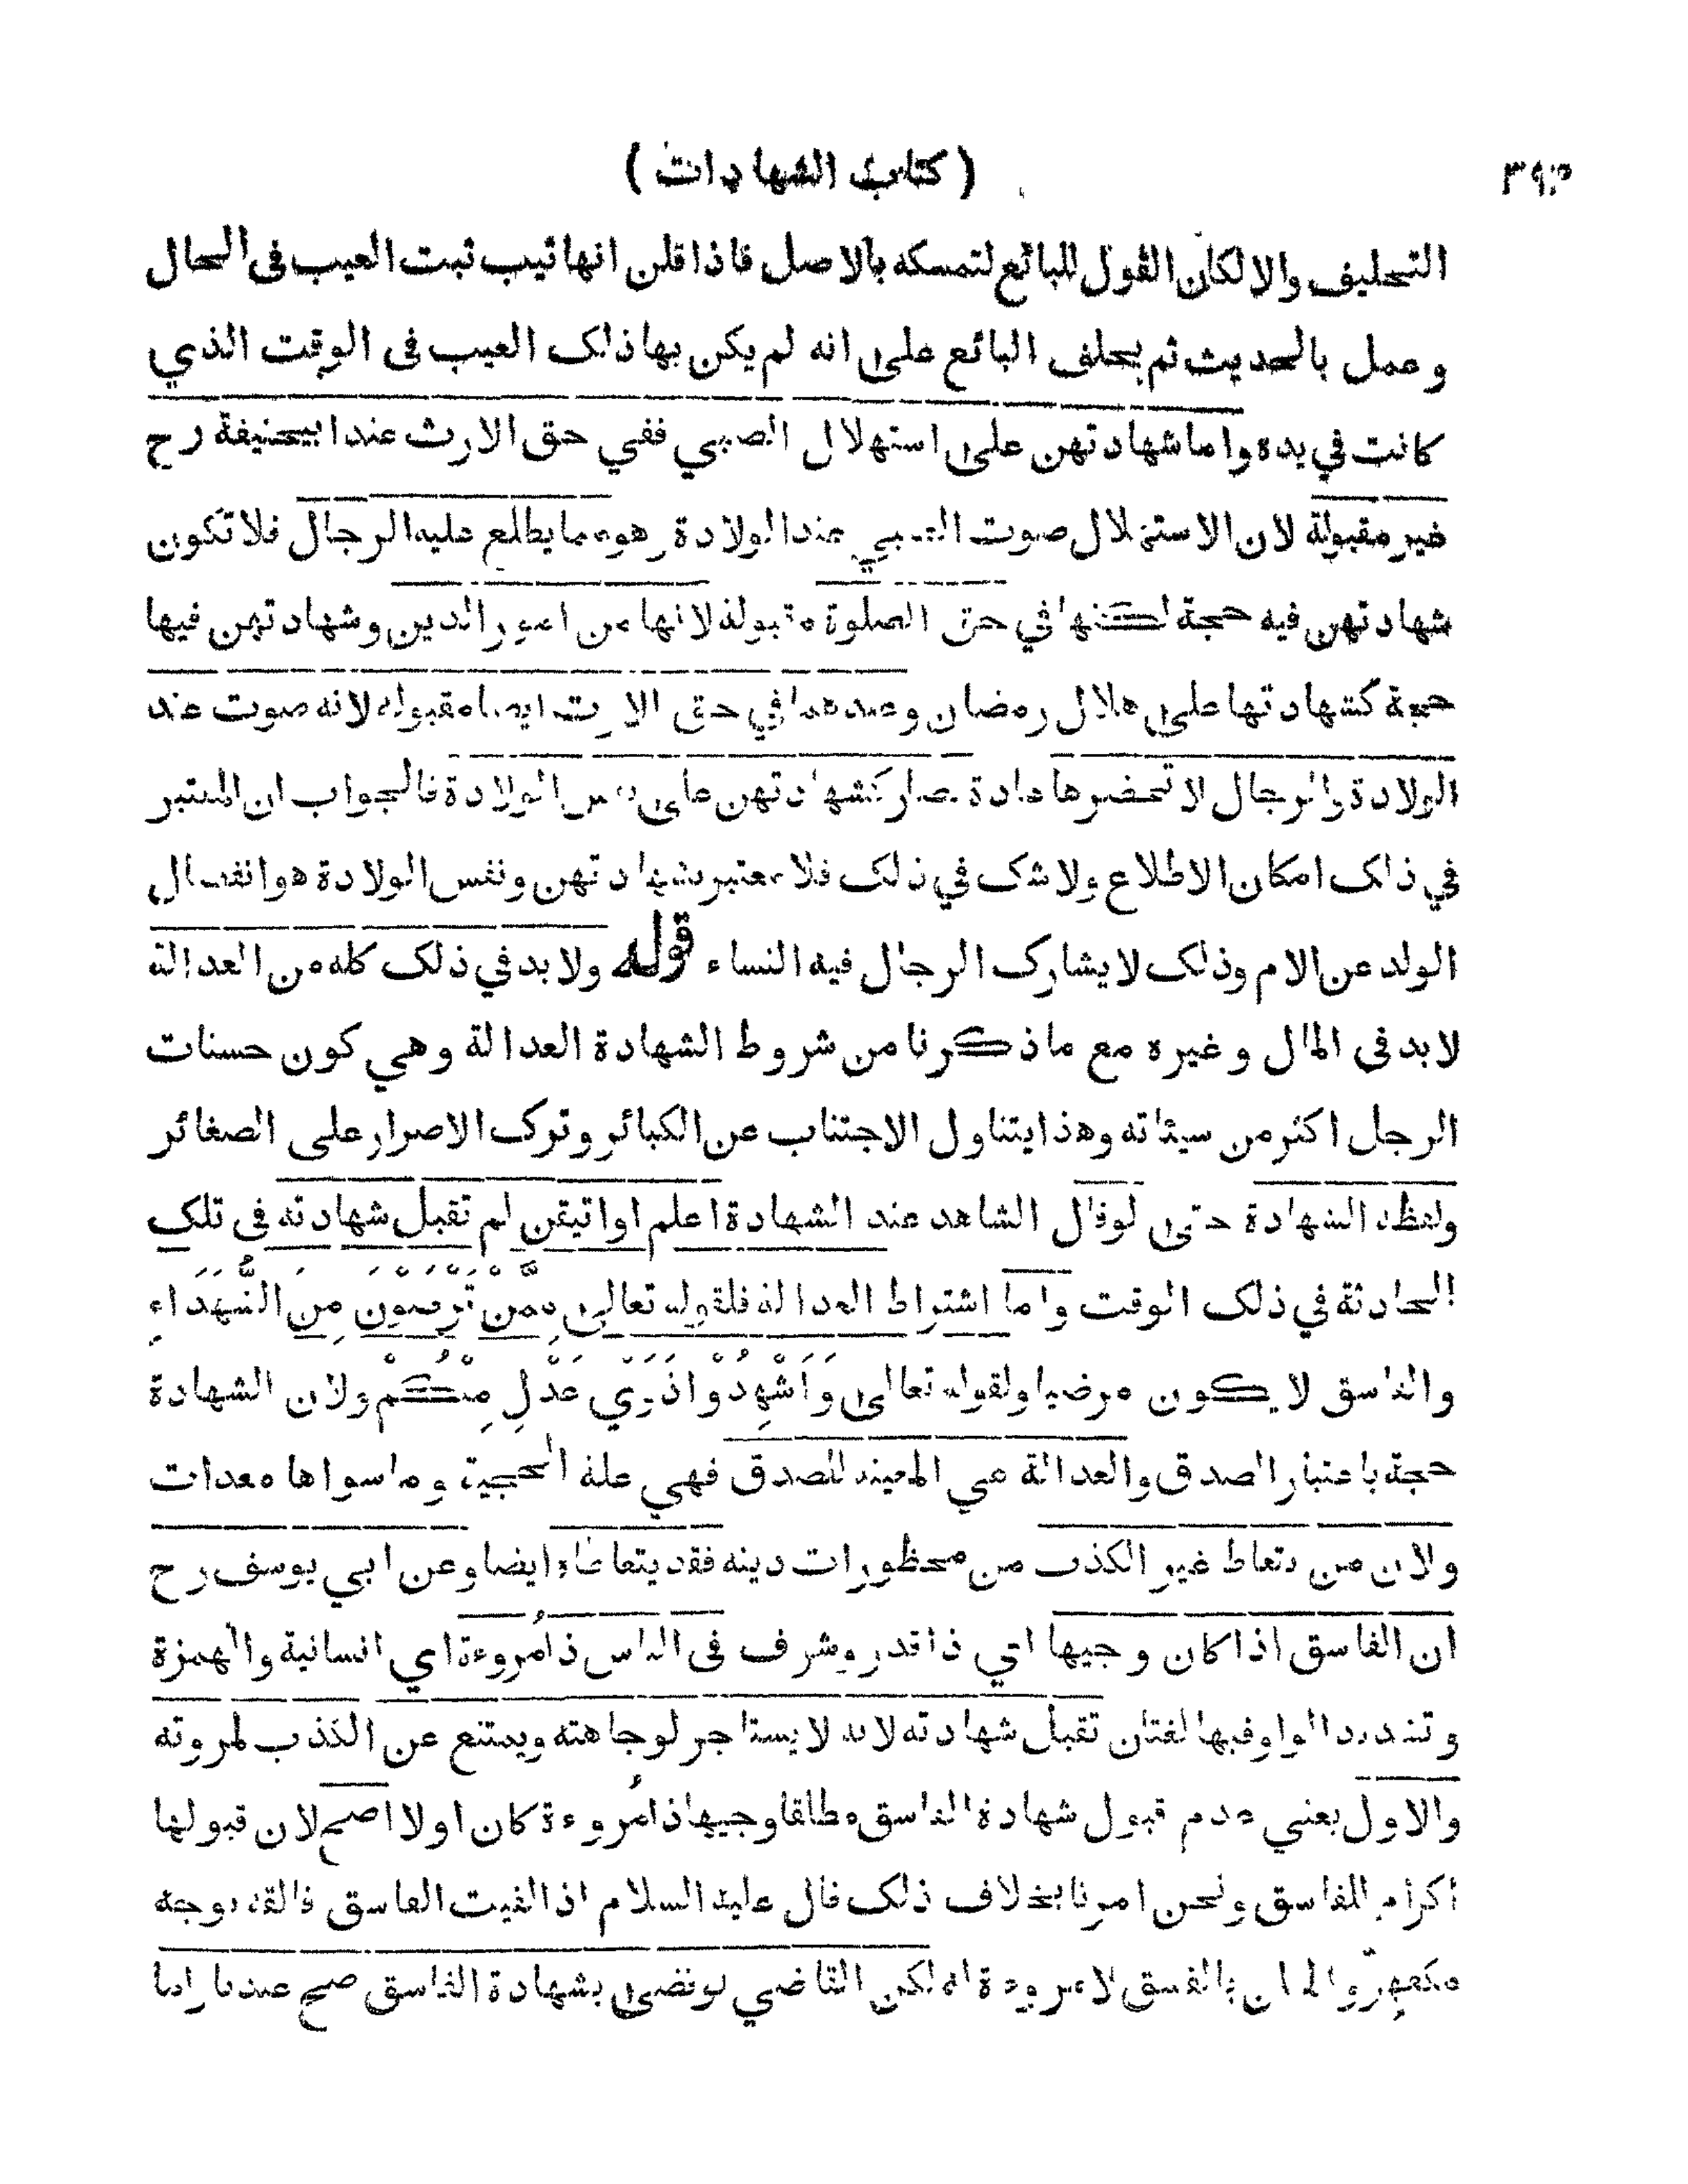 ( كتاب الشهادات )
التحليف والا لكان القول للبائع لتمسكه بالاصل فاذا قلن انها ثيب ثبت العيب فى الحال
وعمل بالحديث ثم يحلف البائع على انه لم يكن بها ذلك العيب فى الوقت الذي
كانت في يده واما شهادتهن على استهلال الصبي ففي حق الارث عند ابيحنيفة رح
غير مقبولة لان الاستهلال صوت الصبي عند الولادة وهو مما يطلع عليه الرجال فلا تكون
شهادتهن فيه حجة لكنها في حق الصلوة مقبولة لانها من امور الدين وشهادتهن فيها
حجة كشهادتها على هلال رمضان وعندهما في حق الارث ايضا مقبولة لانه صوت عند
الولادة والرجال لا تحضرها عادة فصار كشهادتهن على نفس الولادة فالجواب ان المعتبر
في ذلك امكان الاطلاع ولا شك في ذلك فلا معتبر بشهادتهن ونفس الولادة هو انفصال
الولد عن الام وذلك لا يشارك الرجال فيه النساء قوله ولا بد في ذلك كله من العدالة
لا بد فى المال وغيره مع ما ذكرنا من شروط الشهادة العدالة وهي كون حسنات
الرجل اكثر من سيئاته وهذا يتناول الاجتناب عن الكبائر وترك الاصرار على الصغائر
ولفظة الشهادة حتى لو قال الشاهد عند الشهادة اعلم او اتيقن لم تقبل شهادته فى تلك
الحادثة في ذلك الوقت واما اشتراط العدالة فلقوله تعالى مِمَّنْ تَرْضَوْنَ مِنَ الشُّهَدَاءِ
والفاسق لا يكون مرضيا ولقوله تعالى وَاَشْهِدُوْا ذَوَيْ عَدْلٍ مِنْكُمْ ولان الشهادة
حجة باعتبار الصدق والعدالة هي المعينة للصدق فهي علة الحجية وما سواها معدات
ولان من يتعاط غير الكذب من محظورات دينه فقد يتعاطاه ايضا وعن ابي يوسف رح
ان الفاسق اذا كان وجيها اي ذا قدر وشرف فى الناس ذا مُروءة اي انسانية والهمزة
وتشديد الواو فيها لغتان تقبل شهادته لانه لا يستاجر لوجاهته ويمتنع عن الكذب لمروته
والاول يعني عدم قبول شهادة الفاسق مطلقا وجيها ذا مُروءة كان اولا اصح لان قبولها
اكرام للفاسق ونحن امرنا بخلاف ذلك قال عليه السلام اذا لقيت الفاسق فالقه بوجه
مكفهرّ والمعلن بالفسق لا مروءة له لكن القاضي لو قضى بشهادة الفاسق صح عندنا